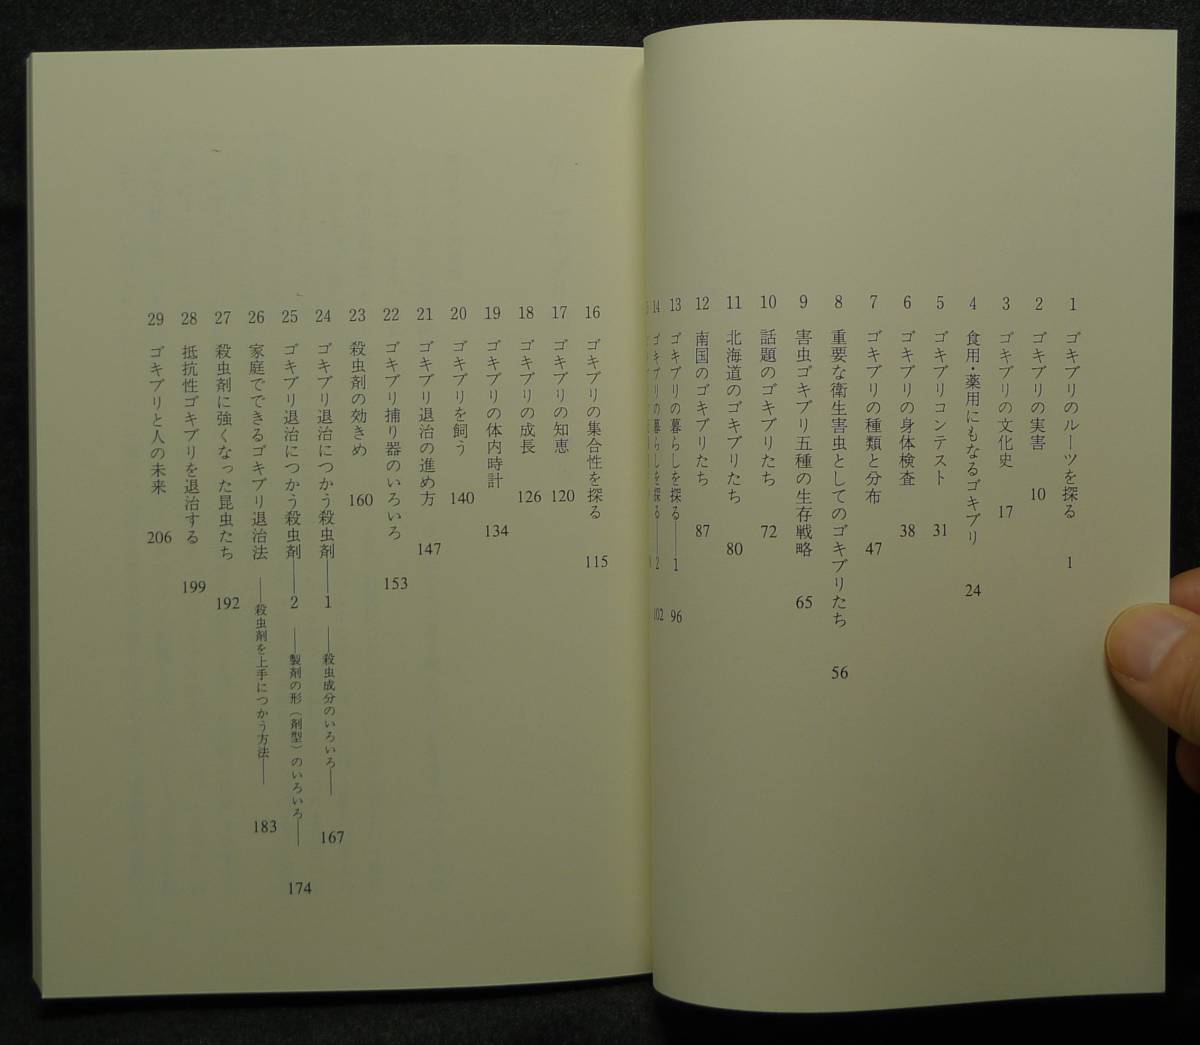 1 ゴキブリのルーツを探る 1
2 ゴキブリの実害 10
3 ゴキブリの文化史 17
4 食用・薬用にもなるゴキブリ 24
5 ゴキブリコンテスト 31
6 ゴキブリの身体検査 38
7 ゴキブリの種類と分布 47
8 重要な衛生害虫としてのゴキブリたち 56
9 害虫ゴキブリ五種の生存戦略 65
10 話題のゴキブリたち 72
11 北海道のゴキブリたち 80
12 南国のゴキブリたち 87
13 ゴキブリの暮らしを探る――1 96
14 ゴキブリの暮らしを探る――2 102
16 ゴキブリの集合性を探る 115
17 ゴキブリの知恵 120
18 ゴキブリの成長 126
19 ゴキブリの体内時計 134
20 ゴキブリを飼う 140
21 ゴキブリ退治の進め方 147
22 ゴキブリ捕り器のいろいろ 153
23 殺虫剤の効きめ 160
24 ゴキブリ退治につかう殺虫剤――1 ――殺虫成分のいろいろ―― 167
25 ゴキブリ退治につかう殺虫剤――2 ――製剤の形（剤型）のいろいろ―― 174
26 家庭でできるゴキブリ退治法 ――殺虫剤を上手につかう方法―― 183
27 殺虫剤に強くなった昆虫たち 192
28 抵抗性ゴキブリを退治する 199
29 ゴキブリと人の未来 206